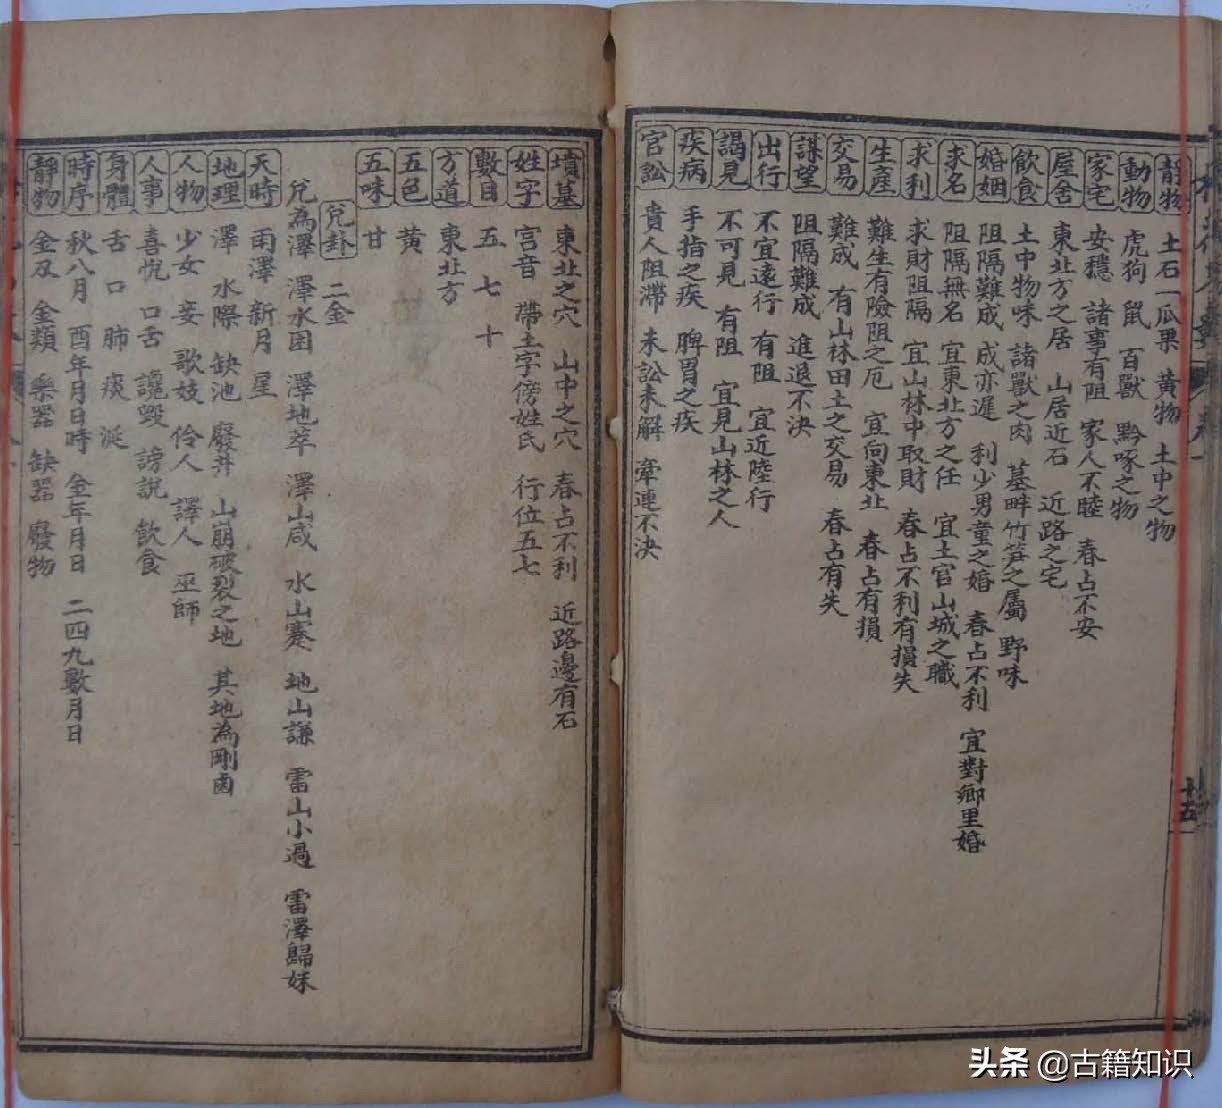 靜物 土石 瓜果 黃物 土中之物
動物 虎狗 鼠 百獸 黔啄之物
家宅 安穩 諸事有阻 家人不睦 春占不安
屋舍 東北方之居 山居近石 近路之宅
飲食 土中物味 諸獸之肉 墓畔竹笋之屬 野味
婚姻 阻隔難成 成亦遲 利少男童之婚 春占不利 宜對鄉里婚
求名 阻隔無名 宜東北方之任 宜土官山城之職
求利 求財阻隔 宜山林中取財 春占不利有損失
生產 難生有險阻之厄 宜向東北 春占有損
交易 難成 有山林田土之交易 春占有失
謀望 阻隔難成 進退不決
出行 不宜遠行 有阻 宜近陸行
謁見 不可見 有阻 宜見山林之人
疾病 手指之疾 脾胃之疾
官訟 貴人阻滯 未訟未解 牽連不決
十五
墳墓 東北之穴 山中之穴 春占不利 近路邊有石
姓字 宮音 帶土字傍姓氏 行位五七
數目 五 七 十
方道 東北方
五色 黃
五味 甘
兌卦 二金
兌為澤 澤水困 澤地萃 澤山咸 水山蹇 地山謙 雷山小過 雷澤歸妹
天時 雨澤 新月 星
地理 澤 水際 缺池 廢井 山崩破裂之地 其地為剛鹵
人物 少女 妾 歌妓 伶人 譯人 巫師
人事 喜悅 口舌 讒毀 謗說 飲食
身體 舌 口 肺 痰 涎
時序 秋八月 酉年月日時 金年月日 二四九數月日
靜物 金及 金類 樂器 缺器 廢物
头条 @古籍知识